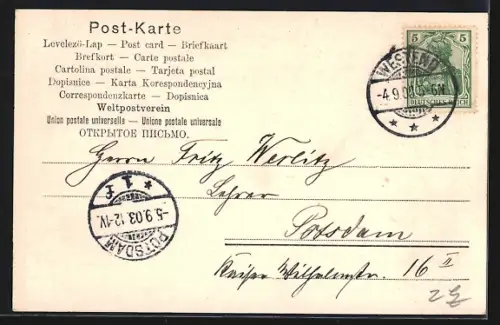 Post-Karte
Levelező-Lap — Post card — Briefkaart
Brefkort — Carte postale
Cartolina postale — Tarjeta postal
Dopisnice — Karta Korespondencyjna
Correspondenzkarte — Dopisnica
Weltpostverein
Union postale universelle — Unione postale universale
ОТКРЫТОЕ ПИСЬМО.
5 5
DEUTSCHES REICH
WESTEND
-4.9.03. 5-6N.
Herrn Fritz Werlitz
Lehrer
Potsdam
Kaiser Wilhelmstr. 16 II
POTSDAM
-5.9.03.12-1V.
* 1 f